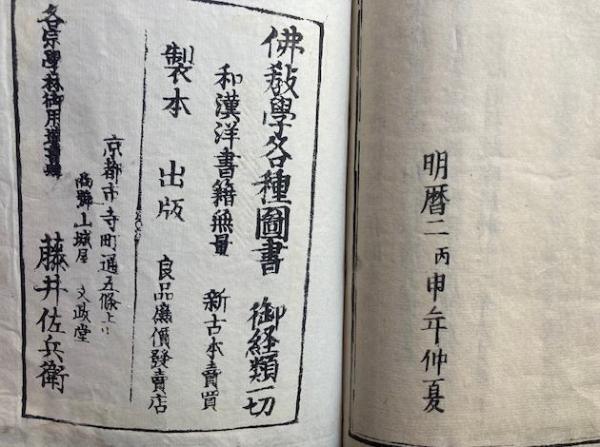 明暦二丙申年仲夏
佛教學各種圖書 御経類一切
和漢洋書籍無量 新古本賣買
製本 出版 良品廉價發賣店
京都市寺町通五條上ル
商號山城屋 文政堂
各宗學林御用達書肆 藤井佐兵衛